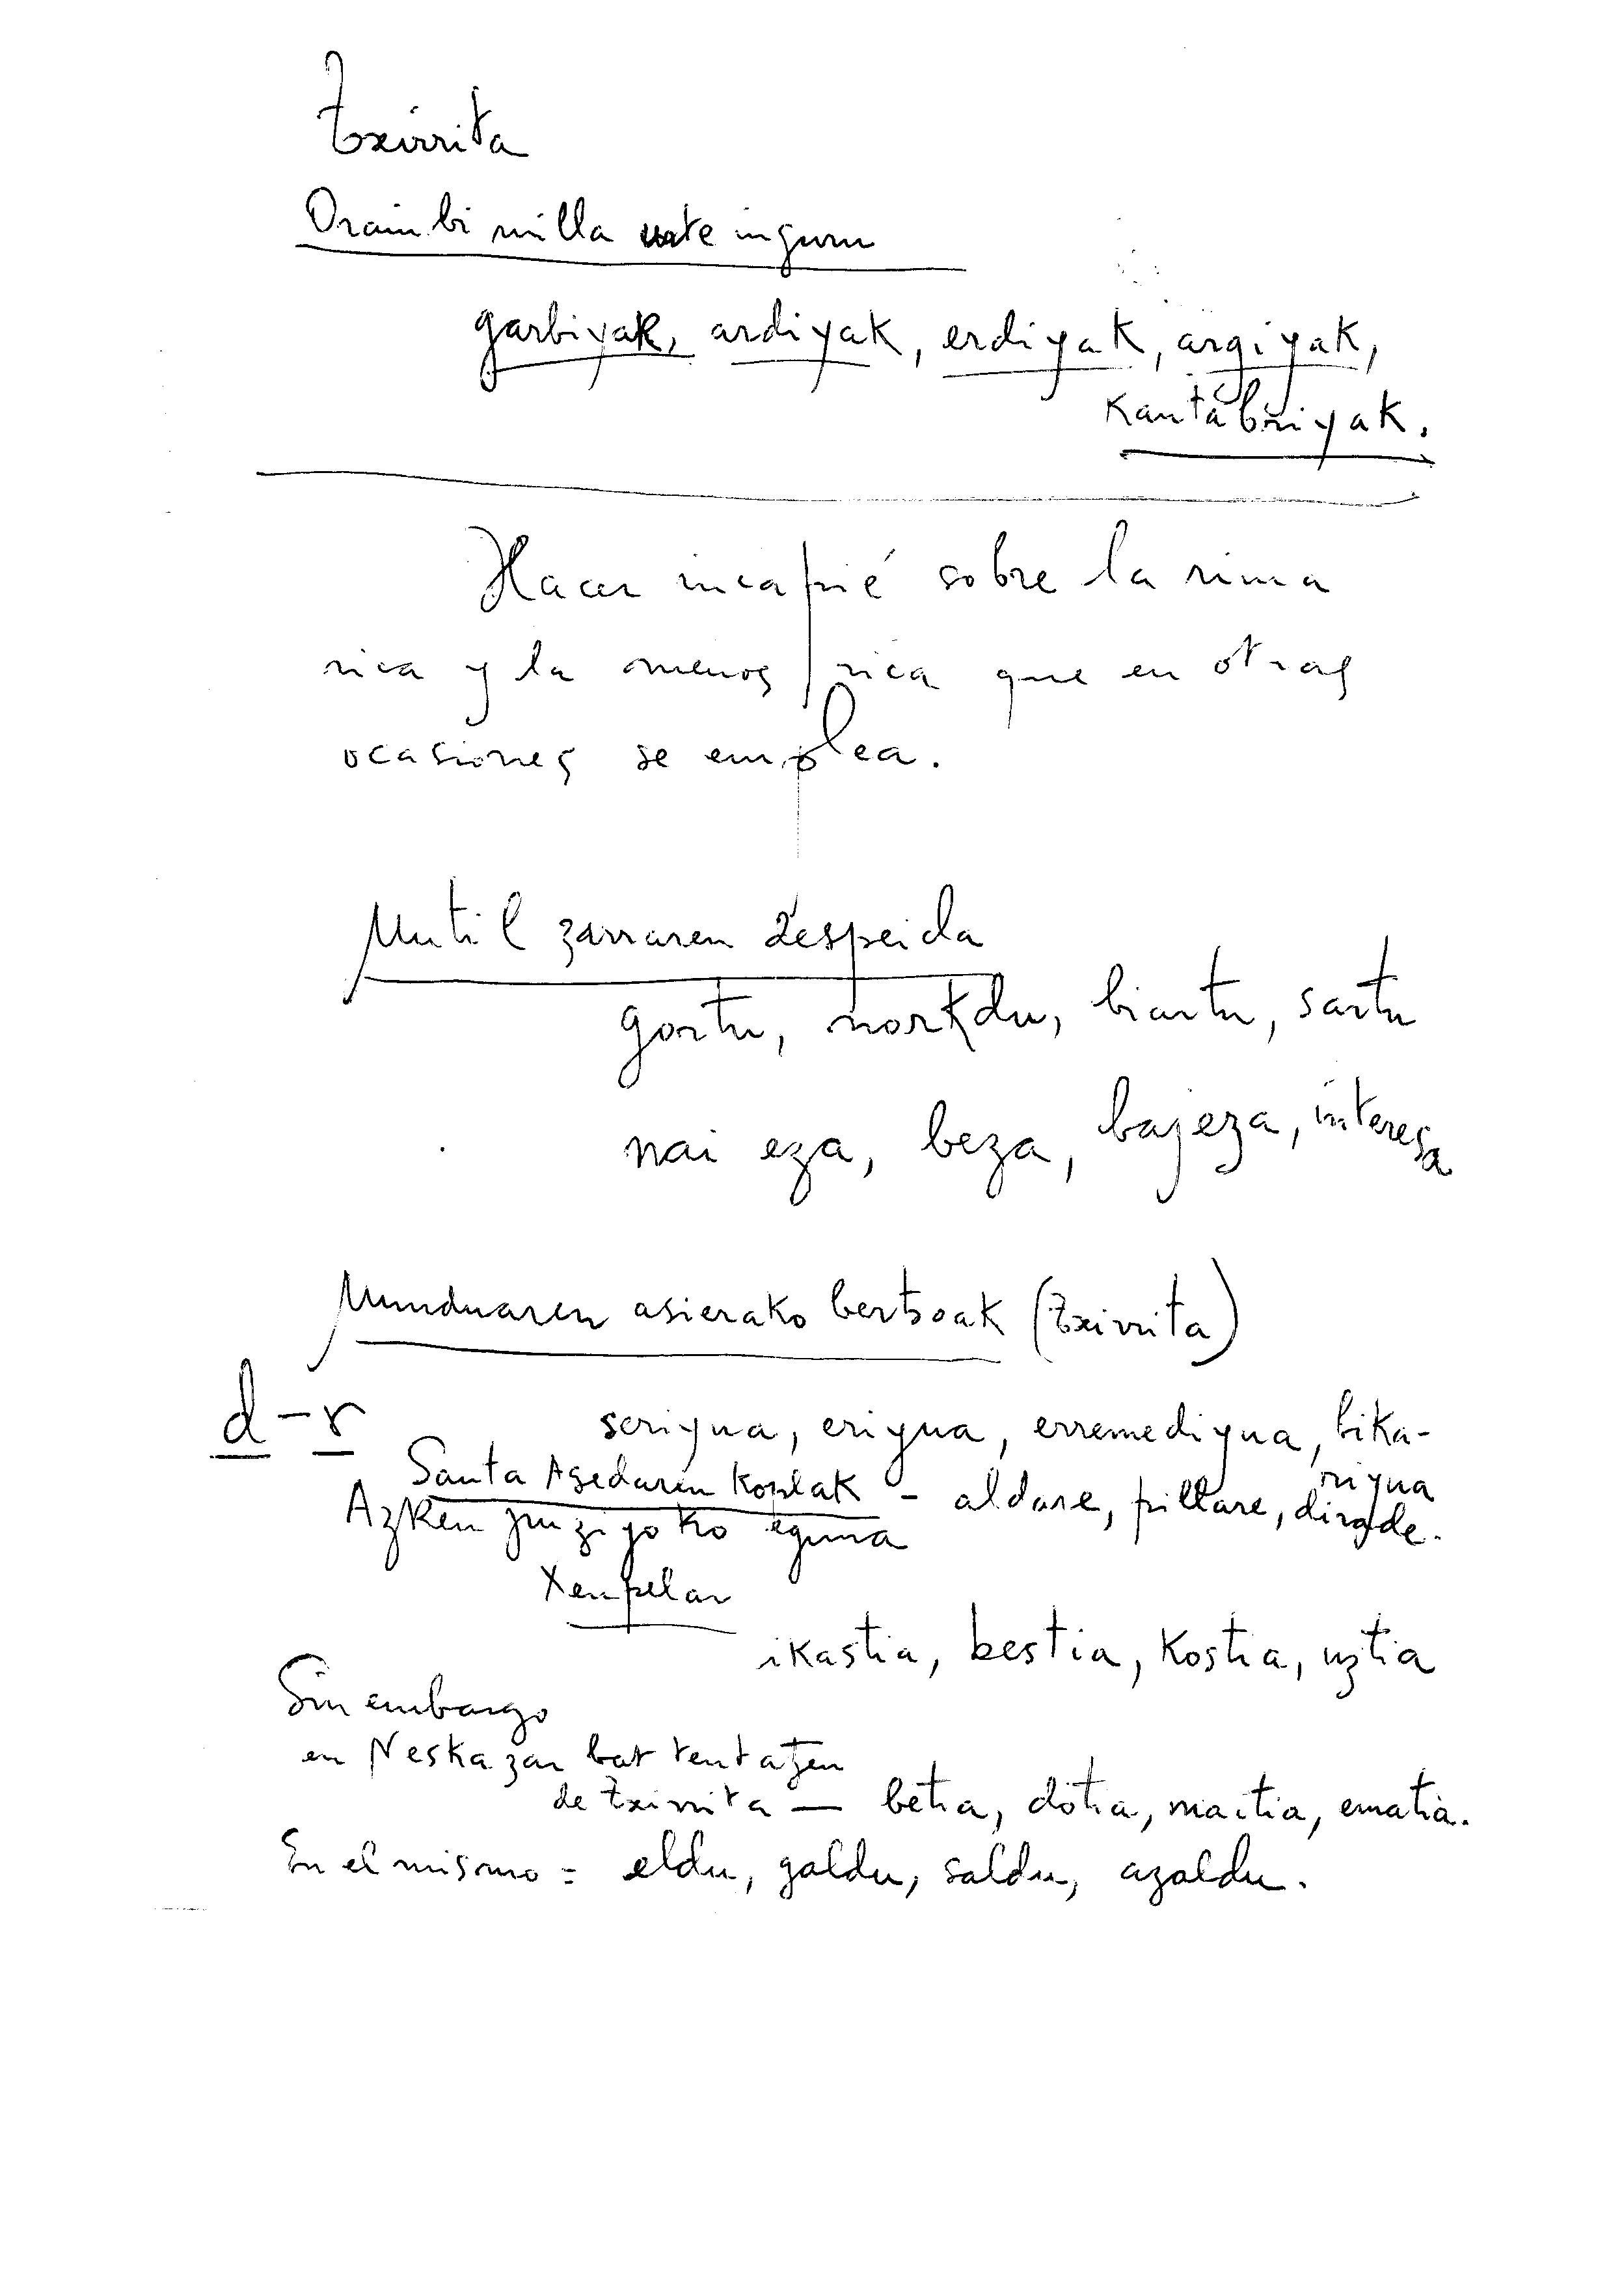 Txirrita
Orain bi milla urte inguru
garbiyak, ardiyak, erdiyak, argiyak,
Kantabriyak.
Hacer incapié sobre la rima
rica y la menos rica que en otras
ocasiones se emplea.
Mutil zarraren despeida
gortu, nork du, biartu, sartu
nai eza, beza, bajeza, interesa
Munduaren asierako bertsoak (Txirrita)
d - r seriyua, eriyua, erremediyua, bika-
riyua
Santa Agedaren Koplak - aldare, pillare, dirade.
Azken juziyoko eguna
Xenpelar
ikastia, bestia, Kostia, uztia
Sin embargo
en Neskazar bat tentatzen
de Txirrita — betia, dotia, maitia, ematia.
En el mismo = eldu, galdu, saldu, azaldu.